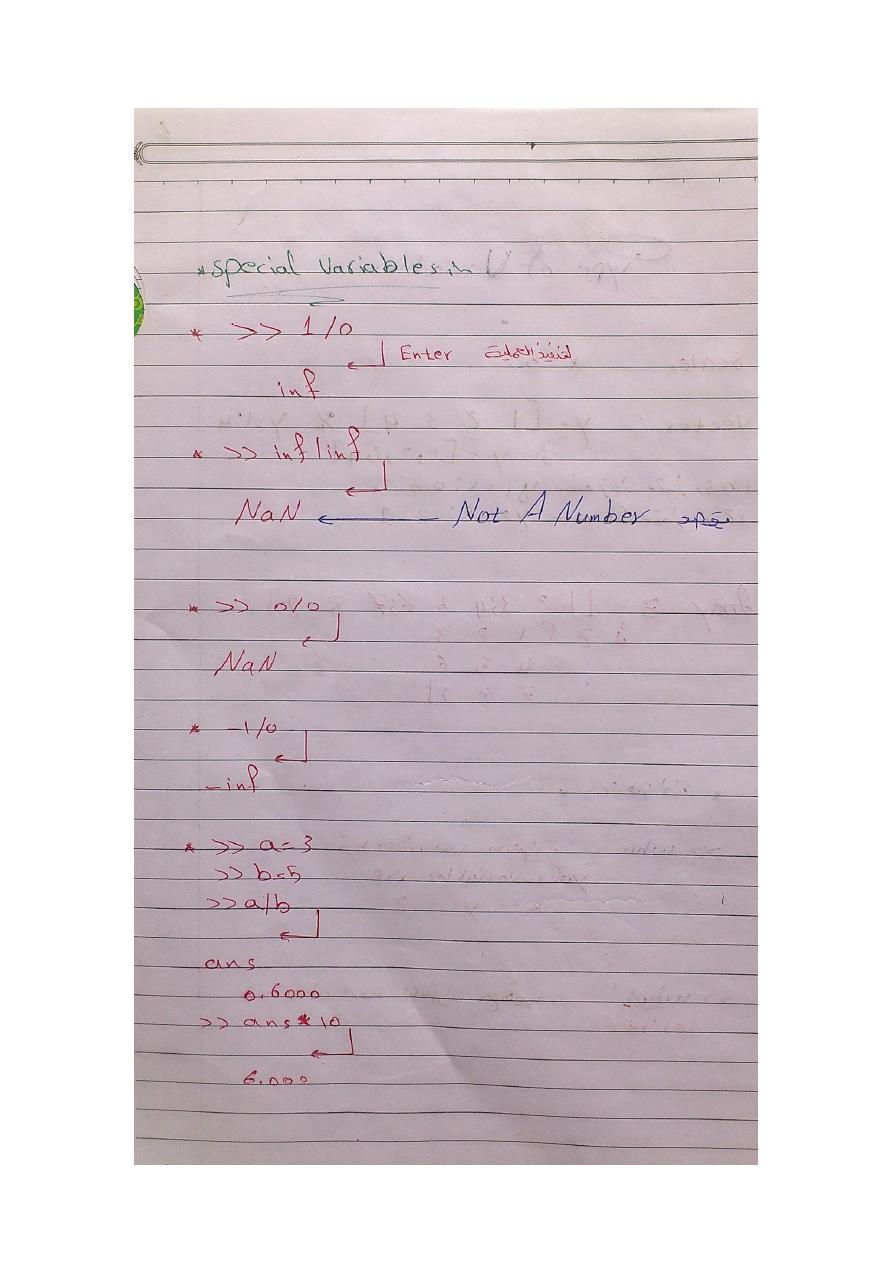 *special Variables:
* >> 1/0
Enter لتنفيذ العملية
inf
* >> inf/inf
NaN ← Not A Number يقصد
* >> 0/0
NaN
* -1/0
-inf
* >> a=3
>> b=5
>> a/b
ans
0.6000
>> ans*10
6.000